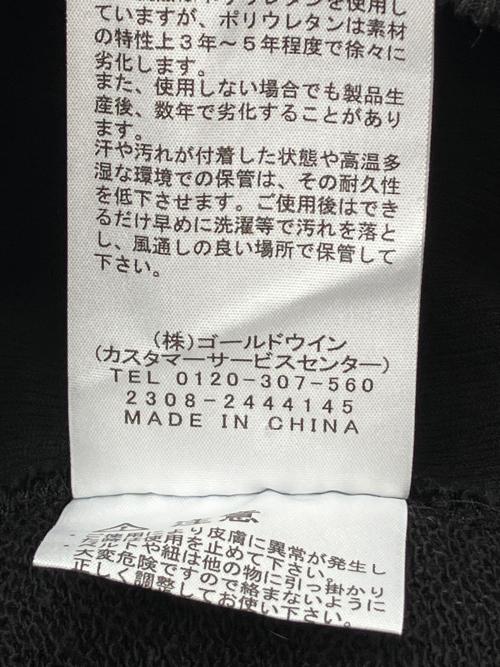 ポリウレタンを使用し
ていますが、ポリウレタンは素材
の特性上3年～5年程度で徐々に
劣化します。
また、使用しない場合でも製品生
産後、数年で劣化することがあり
ます。
汗や汚れが付着した状態や高温多
湿な環境での保管は、その耐久性
を低下させます。ご使用後はでき
るだけ早めに洗濯等で汚れを落と
し、風通しの良い場所で保管して
下さい。
(株)ゴールドウイン
(カスタマーサービスセンター)
TEL 0120-307-560
2308-2444145
MADE IN CHINA
注意
り皮膚に異常が発生し
用を止めて下さい。
や紐は他の物に引っ掛かり
大変危険ですので絡まないように
正しく調整してお使い下さい。